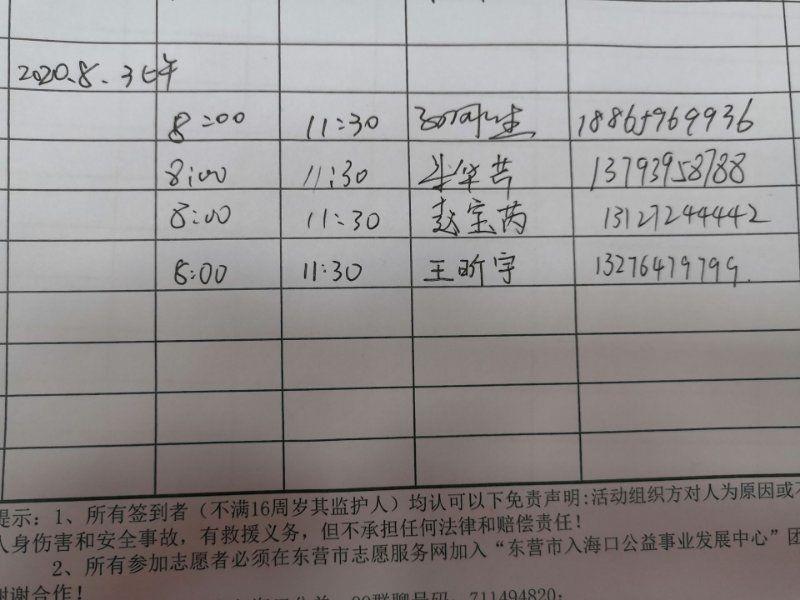 2020.8.3上午
8:00 11:30 18865969936
8:00 11:30 13793958788
8:00 11:30 赵宝芮 13127244442
8:00 11:30 王昕宇 13276479799
提示：1、所有签到者（不满16周岁其监护人）均认可以下免责声明:活动组织方对人为原因或不
人身伤害和安全事故，有救援义务，但不承担任何法律和赔偿责任！
2、所有参加志愿者必须在东营市志愿服务网加入“东营市入海口公益事业发展中心”团
谢谢合作！
群聊号码：711494820；